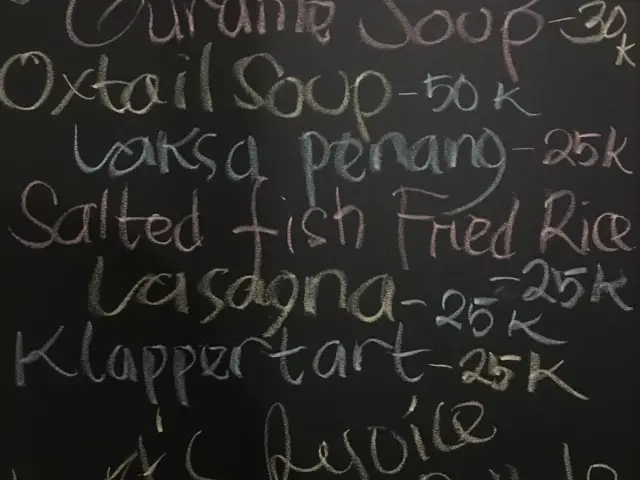 Gurame Soup - 30k
Oxtail Soup - 50 K
Laksa penang - 25K
Salted fish Fried Rice
- 25K
Lasagna - 25 K
Klappertart - 25K
Rejoice